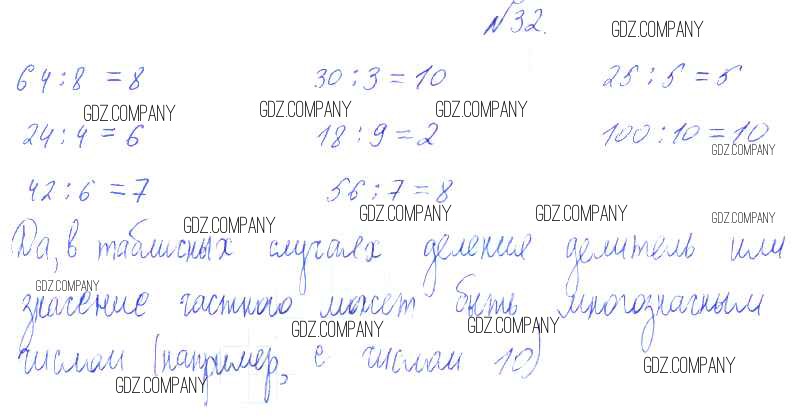 №32. GDZ.COMPANY
64:8 = 8 30:3 = 10 25:5 = 5
GDZ.COMPANY GDZ.COMPANY GDZ.COMPANY
24:4 = 6 18:9 = 2 100:10 = 10
GDZ.COMPANY
42:6 = 7 56:7 = 8
GDZ.COMPANY GDZ.COMPANY GDZ.COMPANY GDZ.COMPANY
Да, в табличных случаях деления делитель или
GDZ.COMPANY
значение частного может быть многозначным
GDZ.COMPANY GDZ.COMPANY
числом (например, с числом 10)
GDZ.COMPANY GDZ.COMPANY